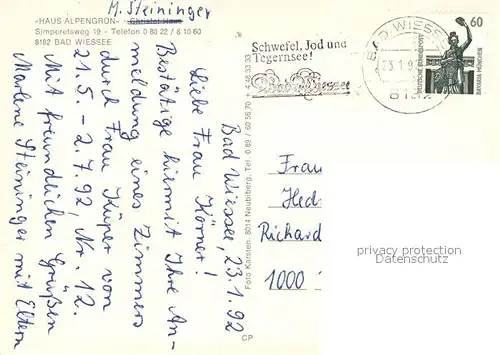 M. Steininger
-HAUS ALPENGRÜN- Christel Haus
Simperetsweg 19 - Telefon 0 80 22 / 8 10 60
8182 BAD WIESSEE
Bad Wiessee, 23.1.92
Liebe Frau Körner!
Bestätige hiermit Ihre An-
meldung eines Zimmers
durch Frau Küper von
21.5. - 2.7.92, Nr. 12.
Mit freundlichen Grüßen
Marlene Steininger mit Eltern
Foto Karsten, 8014 Neubiberg, Tel. 0 89 / 60 56 70 + 4 88 33 33
CP
Schwefel, Jod und
Tegernsee!
Bad Wiessee
BAD WIESSEE
23.1.9
8182
60
DEUTSCHE BUNDESPOST
BAVARIA MÜNCHEN
Frau
Hed
Richard
1000
privacy protection
Datenschutz